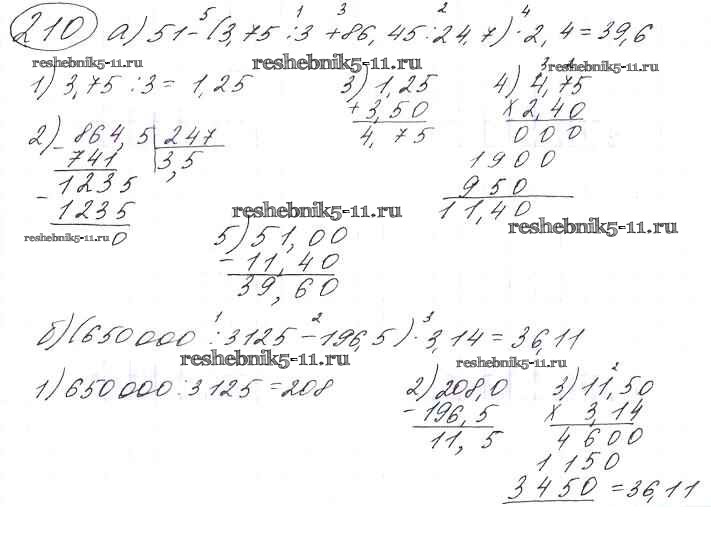 210 а) 51 - (3,75 : 3 + 86,45 : 24,7) · 2,4 = 39,6
5 1 3 2 4
reshebnik5-11.ru reshebnik5-11.ru reshebnik5-11.ru
1) 3,75 : 3 = 1,25
3) 1,25
+ 3,50
4,75
4) 4,75
× 2,40
000
1900
950
11,40
2) 864,5 | 247
- 741 3,5
1235
- 1235
0
reshebnik5-11.ru
reshebnik5-11.ru
reshebnik5-11.ru
5) 51,00
- 11,40
39,60
б) (650000 : 3125 - 196,5) · 3,14 = 36,11
1 2 3
reshebnik5-11.ru
reshebnik5-11.ru
1) 650000 : 3125 = 208
2) 208,0
- 196,5
11,5
3) 11,50
× 3,14
4600
1150
3450 = 36,11